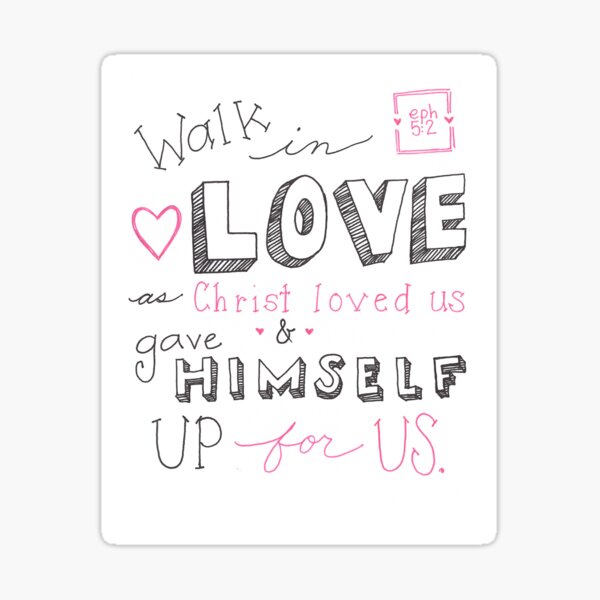 Walk in
eph
5:2
LOVE
as Christ loved us
&
gave HIMSELF
UP for US.